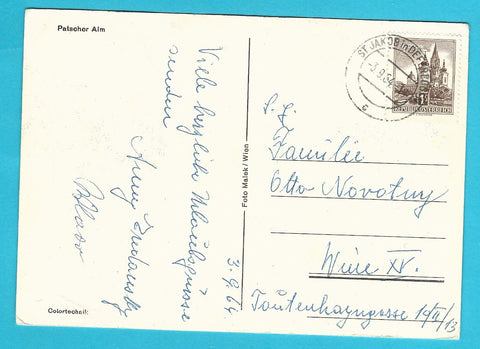 Patscher Alm
Viele herzliche Urlaubsgrüsse
senden
Anny
3.9.64
Colortechnik:
Foto Malek / Wien
ST. JAKOB in DEF
-3.9.64
c
REPUBLIK ÖSTERREICH
S. g.
Familie
Otto Novotny
Wien XV.
Tautenhayngasse 19/II/13